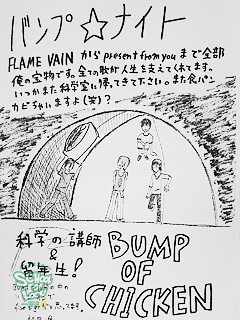 バンプ☆ナイト
FLAME VAIN から present from you まで全部
俺の宝物です。全ての歌が人生を支えてくれてます。
いつかまた科学室に帰ってきて下さい。また食パン
カビちゃいますよ(笑)?
科学の講師
&
留年生!
BUMP
OF
CHICKEN